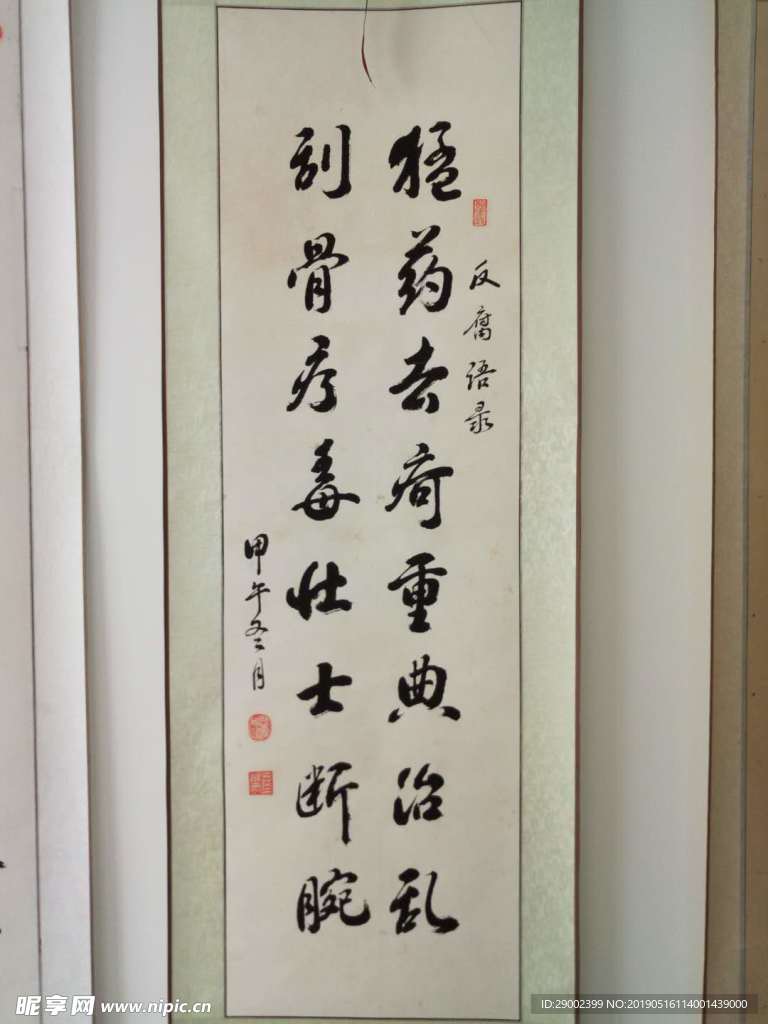 反腐语录
猛药去疴重典治乱
刮骨疗毒壮士断腕
甲午冬月
昵享网 www.nipic.cn
ID:29002399 NO:20190516114001439000